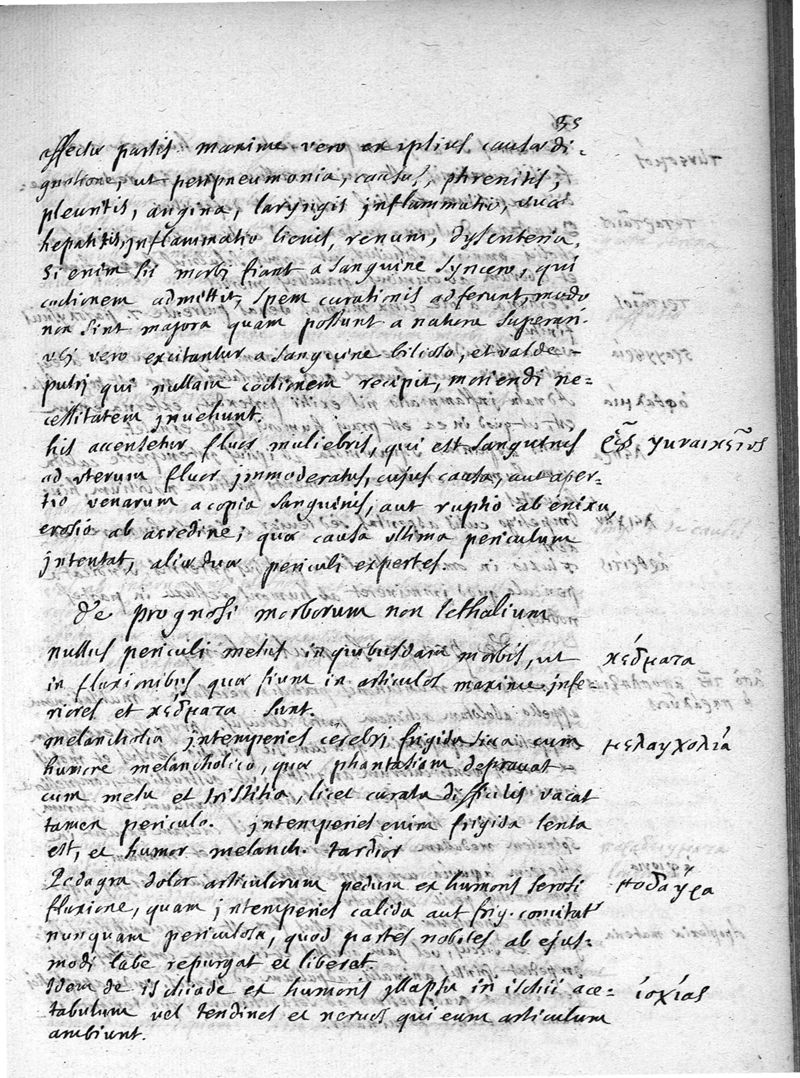 35
affectæ partis maxime vero ex ipsius causæ di-
gnotione, ut peripneumonia, causus, phrenitis,
pleuritis, angina, laryngis inflammatio,
hepatitis, inflammatio lienis, renum, dysenteria.
Si enim hi morbi fiant a sanguine syncero, qui
coctionem admittit, spem curationis adferunt, modo
non sint majora quam possunt a natura superari.
Ubi vero excitantur a sanguine bilioso, et valde
putri qui nullam coctionem recipit, moriendi ne=
cessitatem invehunt.
his accensetur fluor muliebris, qui est sanguinis
γυναικεῖος
ad uterum fluor immoderatus, cujus causa, aut aper-
tio venarum a copia sanguinis, aut ruptio ab enixu,
erosio ab acredine; quæ causa ultima periculum
intentat, aliæ duæ periculi expertes.
de prognosi morborum non lethalium
nullus periculi metus in quibusdam morbis, ut
κέδματα
in fluxionibus quæ fiunt in articulos maxime infe-
riores et κέδματα sunt.
melancholia intemperies cerebri frigida sicca cum
μελαγχολία
humore melancholico, quæ phantasiam depravat
cum metu et tristitia, licet curatu difficilis vacat
tamen periculo. intemperies enim frigida lenta
est, et humor melanch. tardior
Podagra dolor articulorum pedum ex humoris serosi
ποδαγρα
fluxione, quam intemperies calida aut frig. comitatr
nunquam periculosa, quod partes nobiles ab ejus-
modi labe repurgat et liberat.
Idem de ischiade ex humoris illapsu in ischii ace=
ἰσχίας
tabulum vel tendines et nervos qui eum articulum
ambiunt.